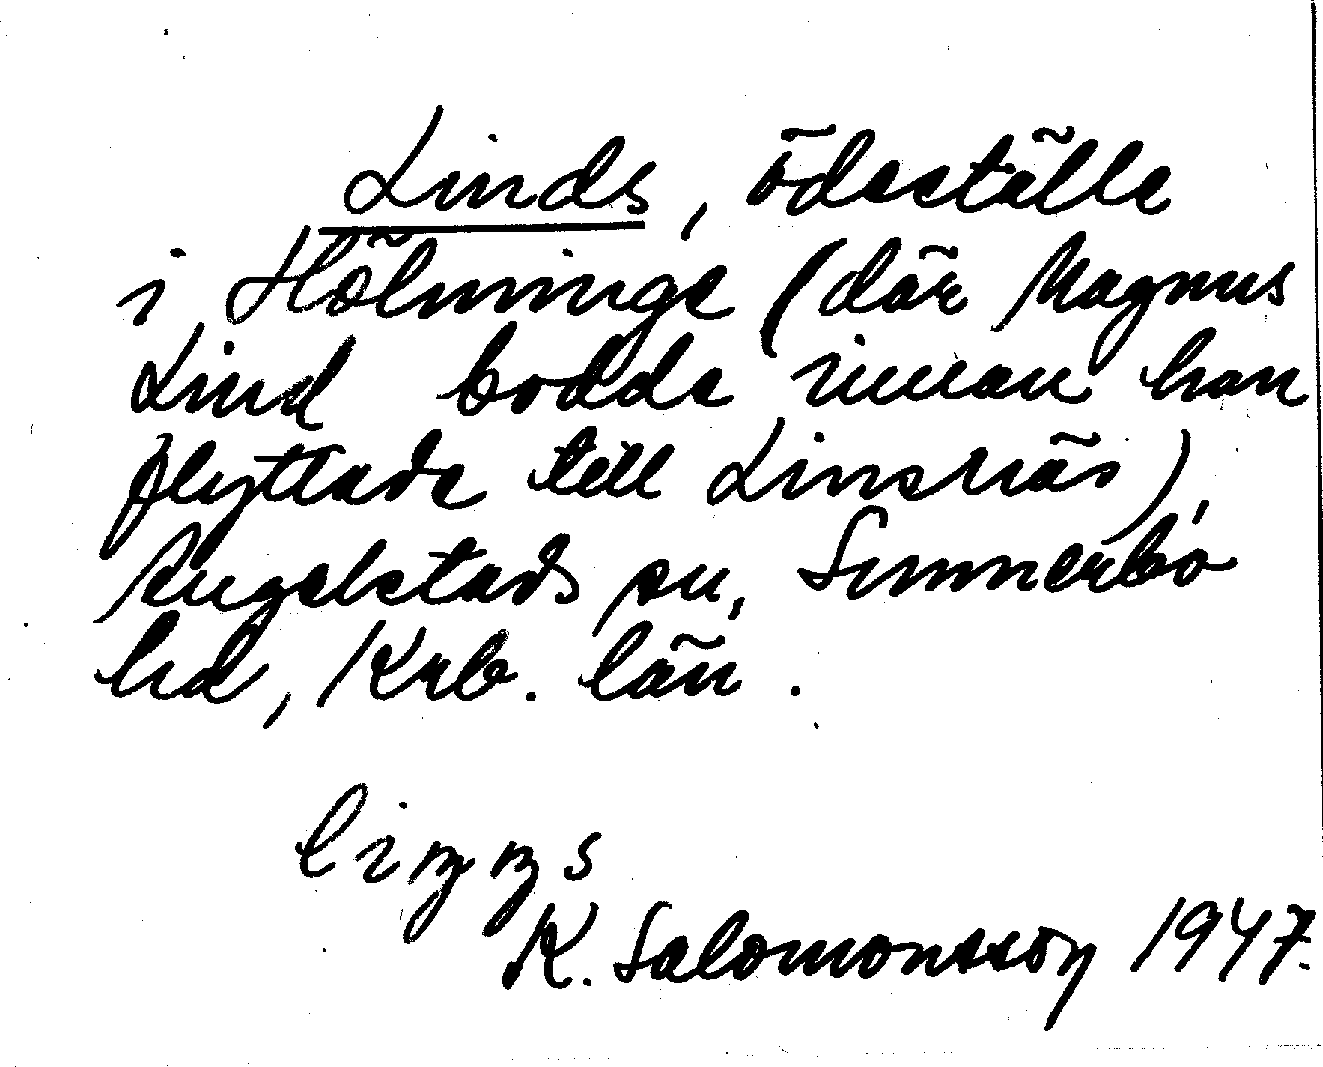 Linds, ödeställe
i Hölminge (där Magnus
Lind bodde innan han
flyttade till Linsnäs),
Angelstads sn, Sunnerbo
hd, Krb. län.
K. Salomonsson 1947.